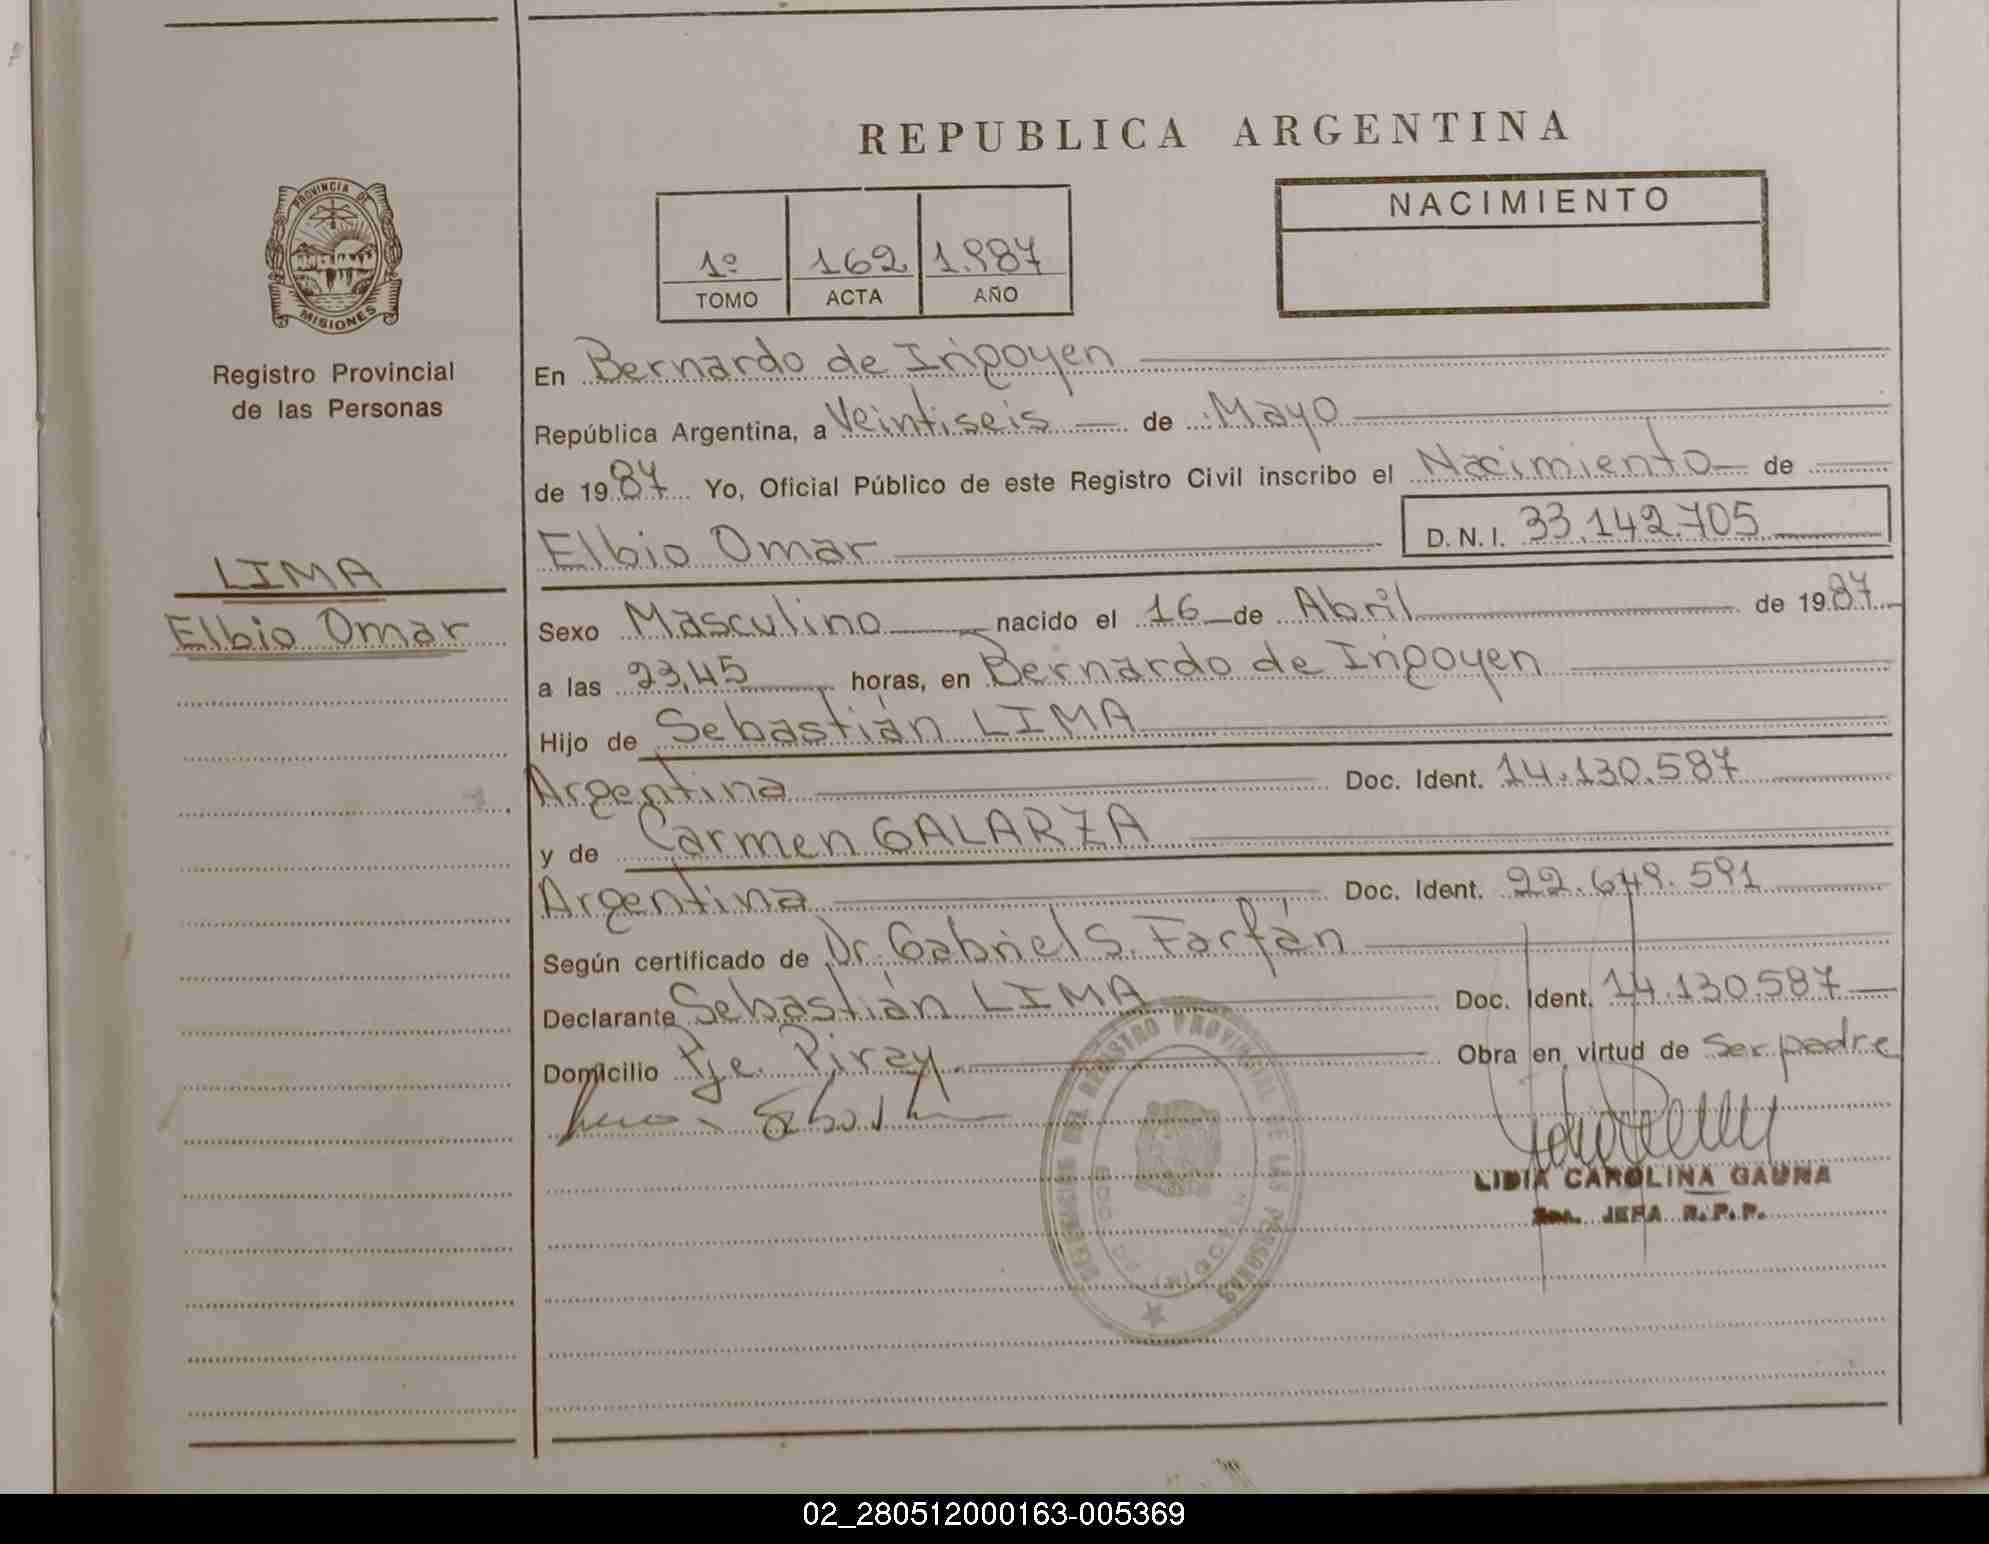 REPUBLICA ARGENTINA
PROVINCIA DE
MISIONES
Registro Provincial
de las Personas
LIMA
Elbio Omar
1º 162 1.987
TOMO ACTA AÑO
NACIMIENTO
En Bernardo de Irigoyen
República Argentina, a Veintiseis de Mayo
de 1987 Yo, Oficial Público de este Registro Civil inscribo el Nacimiento de
Elbio Omar D.N.I. 33.142.705
Sexo Masculino nacido el 16 de Abril de 1987
a las 23,45 horas, en Bernardo de Irigoyen
Hijo de Sebastián LIMA
Argentina Doc. Ident. 14.130.587
y de Carmen GALARZA
Argentina Doc. Ident. 22.649.591
Según certificado de Dr. Gabriel S. Farfán
Declarante Sebastián LIMA Doc. Ident. 14.130.587
Domicilio Pje. Piray Obra en virtud de Ser padre
REGISTRO PROVINCIAL DE LAS PERSONAS
LIDIA CAROLINA GAUNA
JEFA R.P.P.
02_280512000163-005369